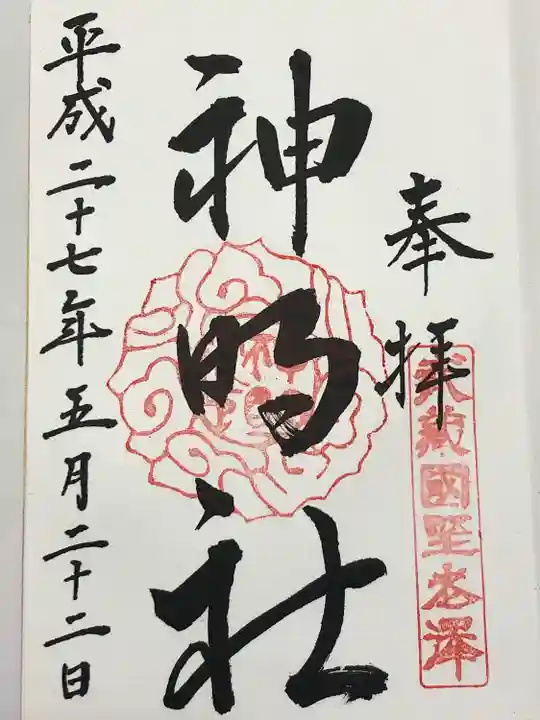 奉拝
武蔵國埜老澤
神明社
平成二十七年五月二十二日